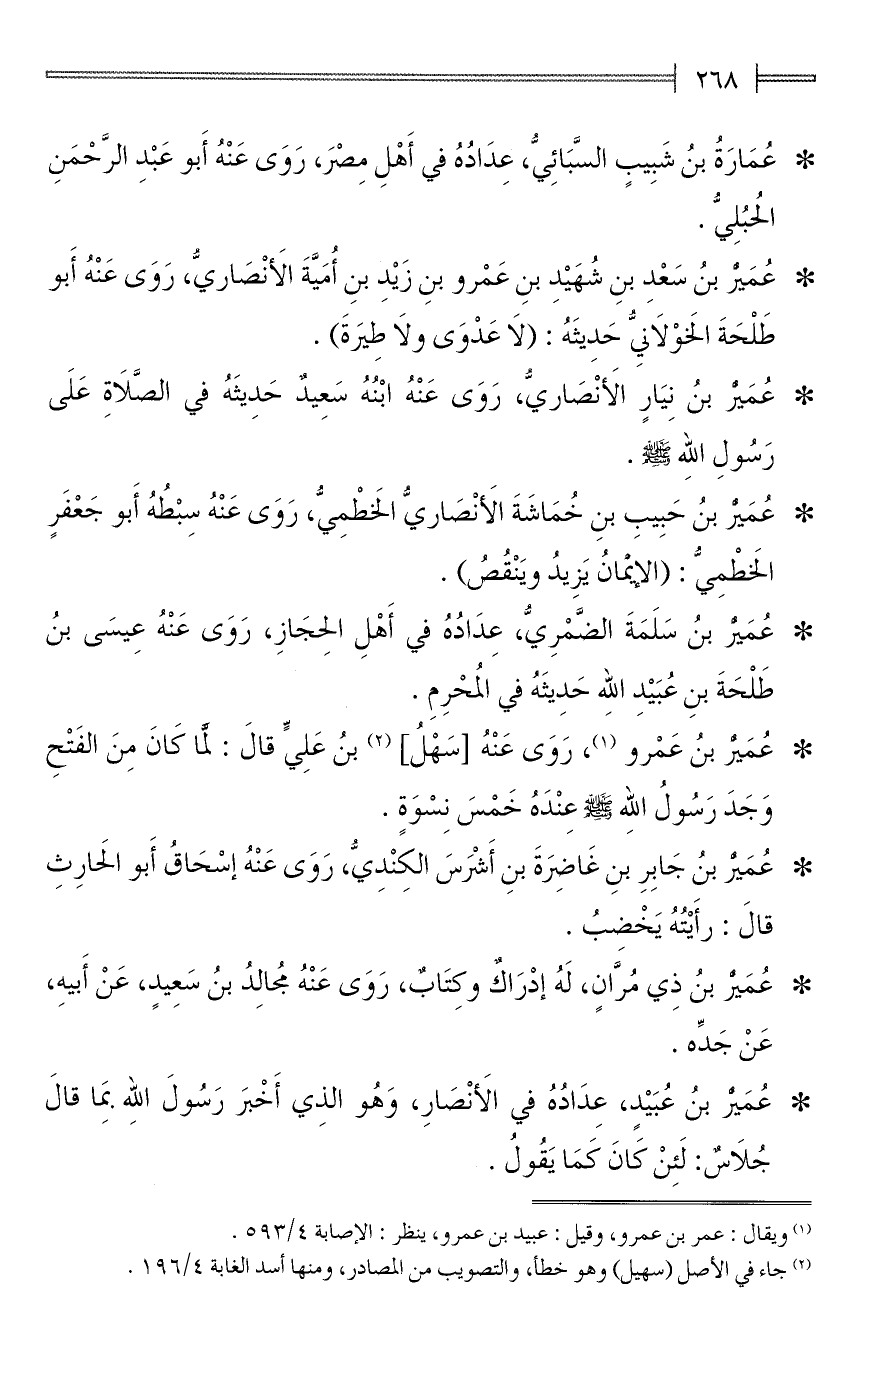 ٢٦٨
* عُمَارَةُ بنُ شَبِيبٍ السَّبَائِيُّ، عِدَادُهُ في أَهْلِ مِصْرَ، رَوَى عَنْهُ أَبو عَبْدِ الرَّحْمَنِ
الحُبُلِيُّ .
* عُمَيْرُ بنُ سَعْدِ بنِ شُهَيْدِ بنِ عَمْرو بنِ زَيْدِ بنِ أُمَيَّةَ الأَنْصَاريُّ، رَوَى عَنْهُ أَبو
طَلْحَةَ الخَوْلَانيُّ حَدِيثَهُ : (لَا عَدْوَى ولَا طِيَرَةَ) .
* عُمَيْرُ بنُ نِيَارٍ الأَنْصَاريُّ، رَوَى عَنْهُ ابْنُهُ سَعِيدٌ حَدِيثَهُ في الصَّلَاةِ عَلَى
رَسُولِ اللهِ ﷺ .
* عُمَيْرُ بنُ حَبِيبِ بنِ خُمَاشَةَ الأَنْصَاريُّ الخَطْمِيُّ، رَوَى عَنْهُ سِبْطُهُ أَبو جَعْفَرٍ
الخَطْمِيُّ : (الإيْمَانُ يَزِيدُ ويَنْقُصُ) .
* عُمَيْرُ بنُ سَلَمَةَ الضَّمْرِيُّ، عِدَادُهُ في أَهْلِ الحِجَازِ، رَوَى عَنْهُ عِيسَى بنُ
طَلْحَةَ بنِ عُبَيْدِ اللهِ حَدِيثَهُ في المُحْرِمِ .
* عُمَيْرُ بنُ عَمْرو (١)، رَوَى عَنْهُ [سَهْلُ] (٢) بنُ عَلِيٍّ قالَ : لمَّا كَانَ مِنَ الفَتْحِ
وَجَدَ رَسُولُ اللهِ ﷺ عِنْدَهُ خَمْسَ نِسْوَةٍ .
* عُمَيْرُ بنُ جَابِرِ بنِ غَاضِرَةَ بنِ أَشْرَسَ الكِنْدِيُّ، رَوَى عَنْهُ إسْحَاقُ أَبو الحَارِثِ
قالَ : رأَيْتُهُ يَخْضِبُ .
* عُمَيْرُ بنُ ذِي مُرَّانٍ، لَهُ إدْرَاكٌ وكِتَابٌ، رَوَى عَنْهُ مُجالِدُ بنُ سَعِيدٍ، عَنْ أَبيهِ،
عَنْ جَدِّه .
* عُمَيْرُ بنُ عُبَيْدٍ، عِدَادُهُ في الأَنْصَارِ، وَهُو الذي أَخْبَرَ رَسُولَ اللهِ بمَا قالَ
جُلَاسٌ: لَئِنْ كَانَ كَمَا يَقُولُ .
(١) ويقال : عمر بن عمرو، وقيل : عبيد بن عمرو، ينظر : الإصابة ٥٩٣/٤ .
(٢) جاء في الأصل (سهيل) وهو خطأ، والتصويب من المصادر، ومنها أسد الغابة ١٩٦/٤ .